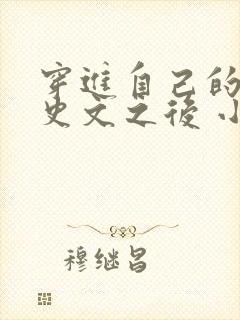 穿進自己的
史文之後 小
穆继昌